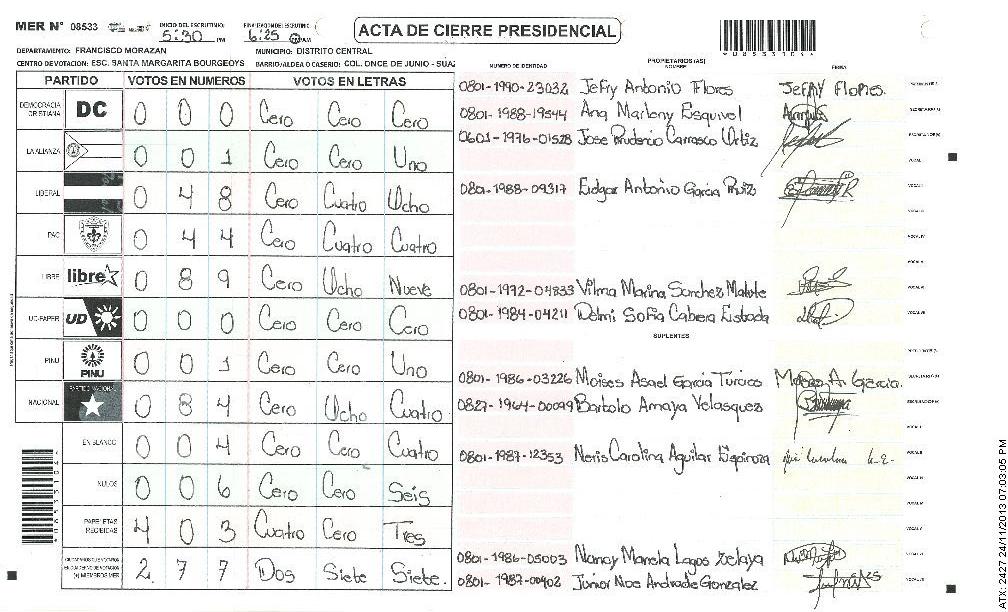 MER N° 08533
INICIO DEL ESCRUTINIO: 5:30 PM
FINALIZACION DEL ESCRUTINIO: 6:25 PM/AM
ACTA DE CIERRE PRESIDENCIAL
*08533104*
DEPARTAMENTO: FRANCISCO MORAZAN MUNICIPIO: DISTRITO CENTRAL
CENTRO DE VOTACION: ESC. SANTA MARGARITA BOURGEOYS BARRIO/ALDEA O CASERIO: COL. ONCE DE JUNIO - SUAZ
PARTIDO VOTOS EN NUMEROS VOTOS EN LETRAS
DEMOCRACIA CRISTIANA DC 0 0 0 Cero Cero Cero
LA ALIANZA 0 0 1 Cero Cero Uno
LIBERAL 0 4 8 Cero Cuatro Ocho
PAC 0 4 4 Cero Cuatro Cuatro
LIBRE libre 0 8 9 Cero Ocho Nueve
UD-FAPER UD 0 0 0 Cero Cero Cero
PINU PINU 0 0 1 Cero Cero Uno
NACIONAL PARTIDO NACIONAL 0 8 4 Cero Ocho Cuatro
EN BLANCO 0 0 4 Cero Cero Cuatro
NULOS 0 0 6 Cero Cero Seis
PAPELETAS RECIBIDAS 4 0 3 Cuatro Cero Tres
CIUDADANOS QUE VOTARON EN CUADERNO DE VOTACION (+) MIEMBROS MER 2 7 7 Dos Siete Siete.
PROPIETARIOS (AS)
NUMERO DE IDENTIDAD NOMBRE FIRMA
0801-1990-23032 Jefry Antonio Flores Jefry Flores.
0801-1988-19544 Ana Marleny Esquivel
0601-1976-01528 Jose Prudencio Carrasco Ortiz
0801-1988-09317 Edgar Antonio Garcia Ruiz
0801-1972-04833 Vilma Marina Sanchez Matute
0801-1984-04211 Delmi Sofia Cabrera Estrada
SUPLENTES
0801-1986-03226 Moises Asael Garcia Turcios Moises A. Garcia.
0827-1964-00099 Bartolo Amaya Velasquez
0801-1987-12353 Neris Carolina Aguilar Espinoza
0801-1986-05003 Nancy Mariela Lagos Zelaya
0801-1987-00402 Junior Noe Andrade Gonzalez
ATX: 2427 24/11/2013 07:03:05 PM